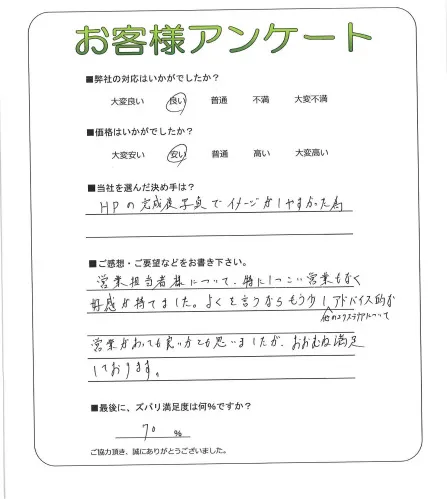 お客様アンケート
■弊社の対応はいかがでしたか?
大変良い 良い 普通 不満 大変不満
■価格はいかがでしたか?
大変安い 安い 普通 高い 大変高い
■当社を選んだ決め手は?
HPの完成後写真でイメージがしやすかった為
■ご感想・ご要望などをお書き下さい。
営業担当者様について、特にしつこい営業もなく
好感が持てました。よくを言うならもう少しアドバイス的な
他のエクステリアについて
営業があっても良いかとも思いましたが、おおむね満足
しております。
■最後に、ズバリ満足度は何%ですか?
70 %
ご協力頂き、誠にありがとうございました。